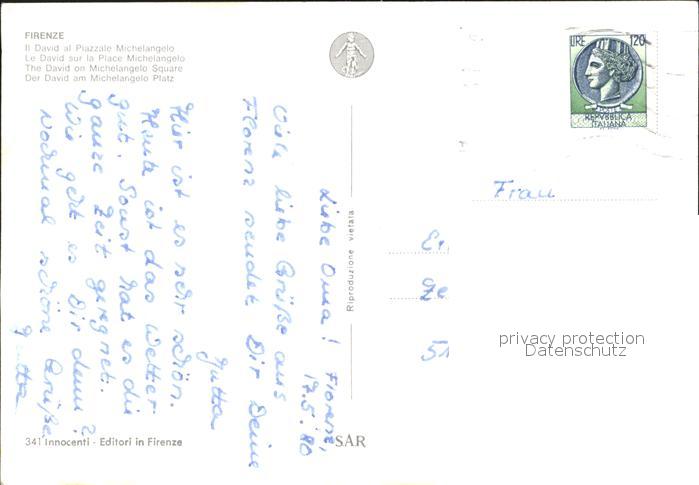 FIRENZE
Il David al Piazzale Michelangelo
Le David sur la Place Michelangelo
The David on Michelangelo Square
Der David am Michelangelo Platz
Florenz,
17.5.80
Liebe Oma!
Viele liebe Grüße aus
Florenz sendet Dir Deine
Jutta
Hier ist es sehr schön.
Heute ist das Wetter
gut. Sonst hat es die
ganze Zeit geregnet.
Wie geht es Dir denn?
Nochmal schöne Grüße
Jutta
341 Innocenti - Editori in Firenze
Riproduzione vietata
SAR
LIRE 120
POSTE
REPVBBLICA
ITALIANA
Frau
Er
Ze
51
privacy protection
Datenschutz